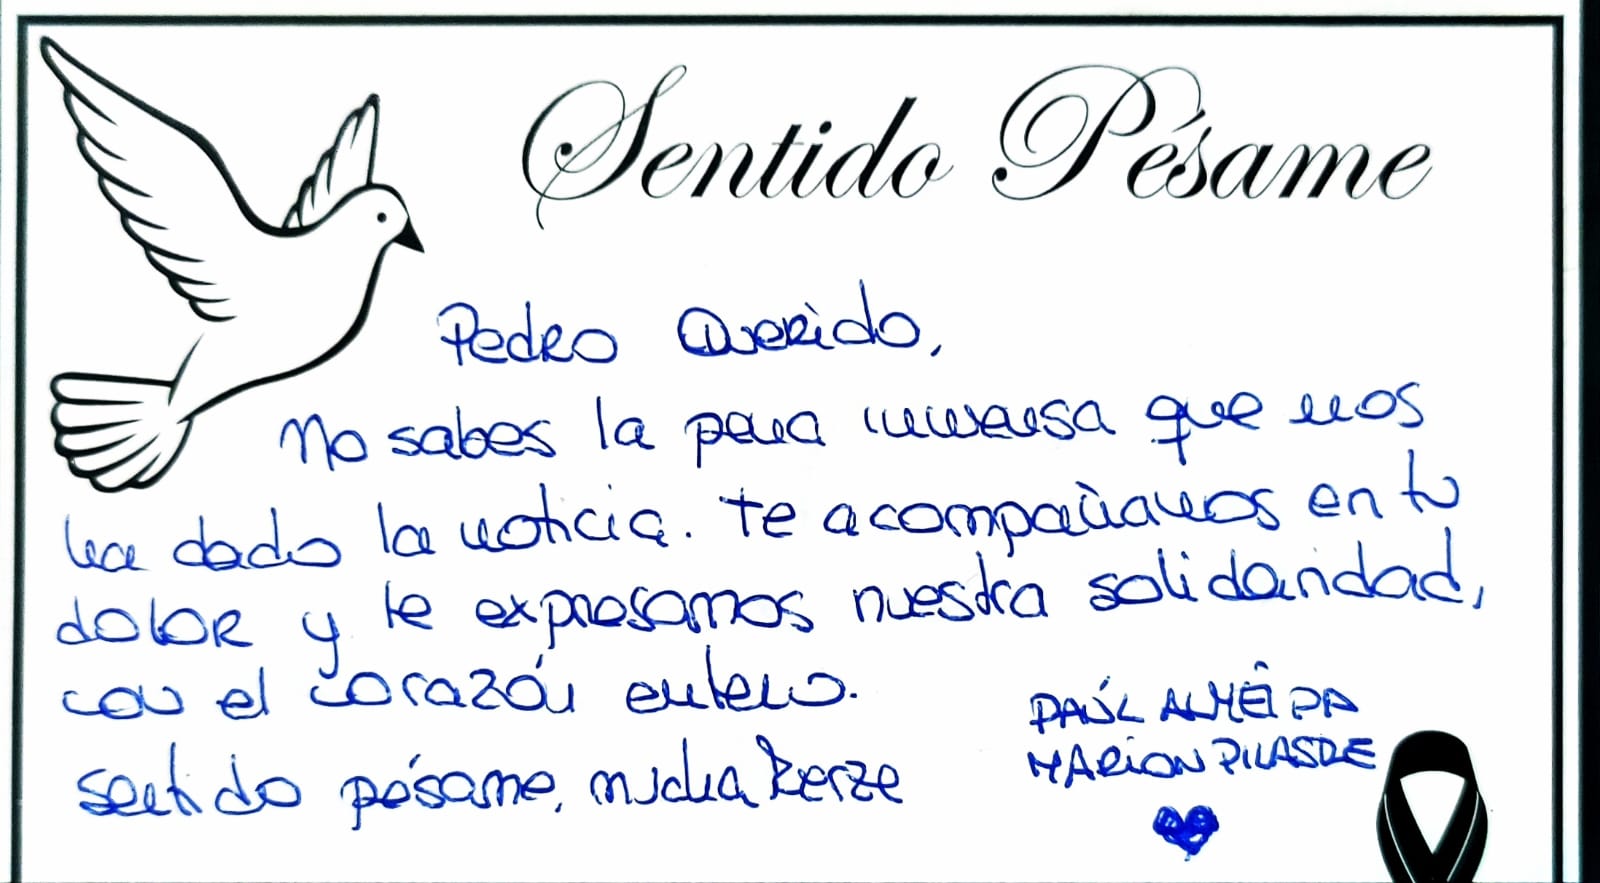 Sentido Pésame
Pedro Querido,
No sabes la pena inmensa que nos
ha dado la noticia. Te acompañamos en tu
dolor y te expresamos nuestra solidaridad,
con el corazón entero.
Sentido pésame, mucha fuerza
PAÚL ALMEIDA
MARION PILASRE